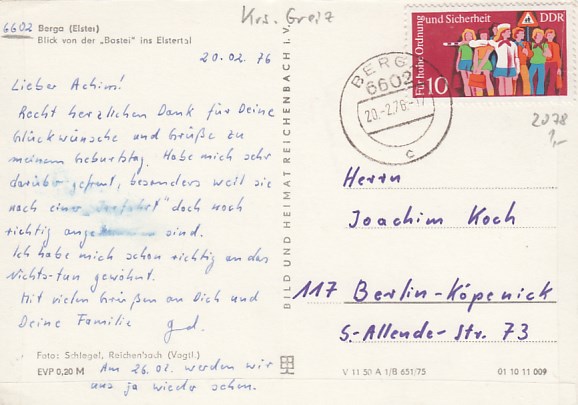 Krs. Greiz
6602 Berga (Elster)
Blick von der „Bastei" ins Elstertal
20.02.76
Lieber Achim!
Recht herzlichen Dank für Deine
Glückwünsche und Grüße zu
meinem Geburtstag. Habe mich sehr
darüber gefreut, besonders weil sie
nach einer „Irrfahrt" doch noch
richtig sind.
Ich habe mich schon richtig an das
Nichts-tun gewöhnt.
Mit vielen Grüßen an Dich und
Deine Familie
Foto: Schlegel, Reichenbach (Vogtl.)
EVP 0,20 M
Am 26.02. werden wir
uns ja wieder sehen.
BILD UND HEIMAT REICHENBACH i. V.
BERGA
6602
20.-2.76.-17
c
Für hohe Ordnung und Sicherheit
DDR
10
2078
1,-
Herrn
Joachim Koch
117 Berlin-Köpenick
S.-Allende-Str. 73
V 11 50 A 1/B 651/75
01 10 11 009